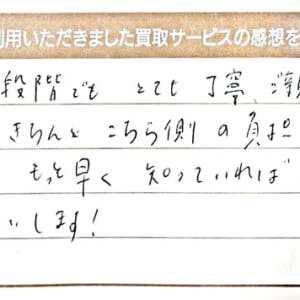 利用いただきました買取サービスの感想を
段階でも とても 丁寧、
きちんと こちら側の負担
もっと早く 知っていれば
いします!